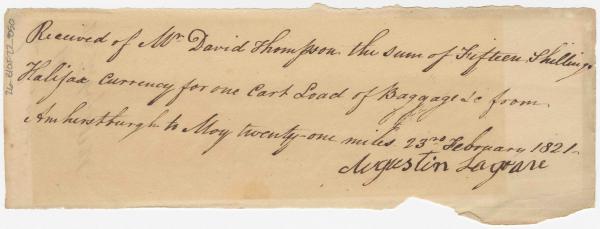 Received of Mr David Thompson the sum of Fifteen Shillings
Halifax Currency for one Cart Load of Baggage &c from
Amherstburgh to Moy twenty-one miles 23rd February 1821-
Augustin Lagrave